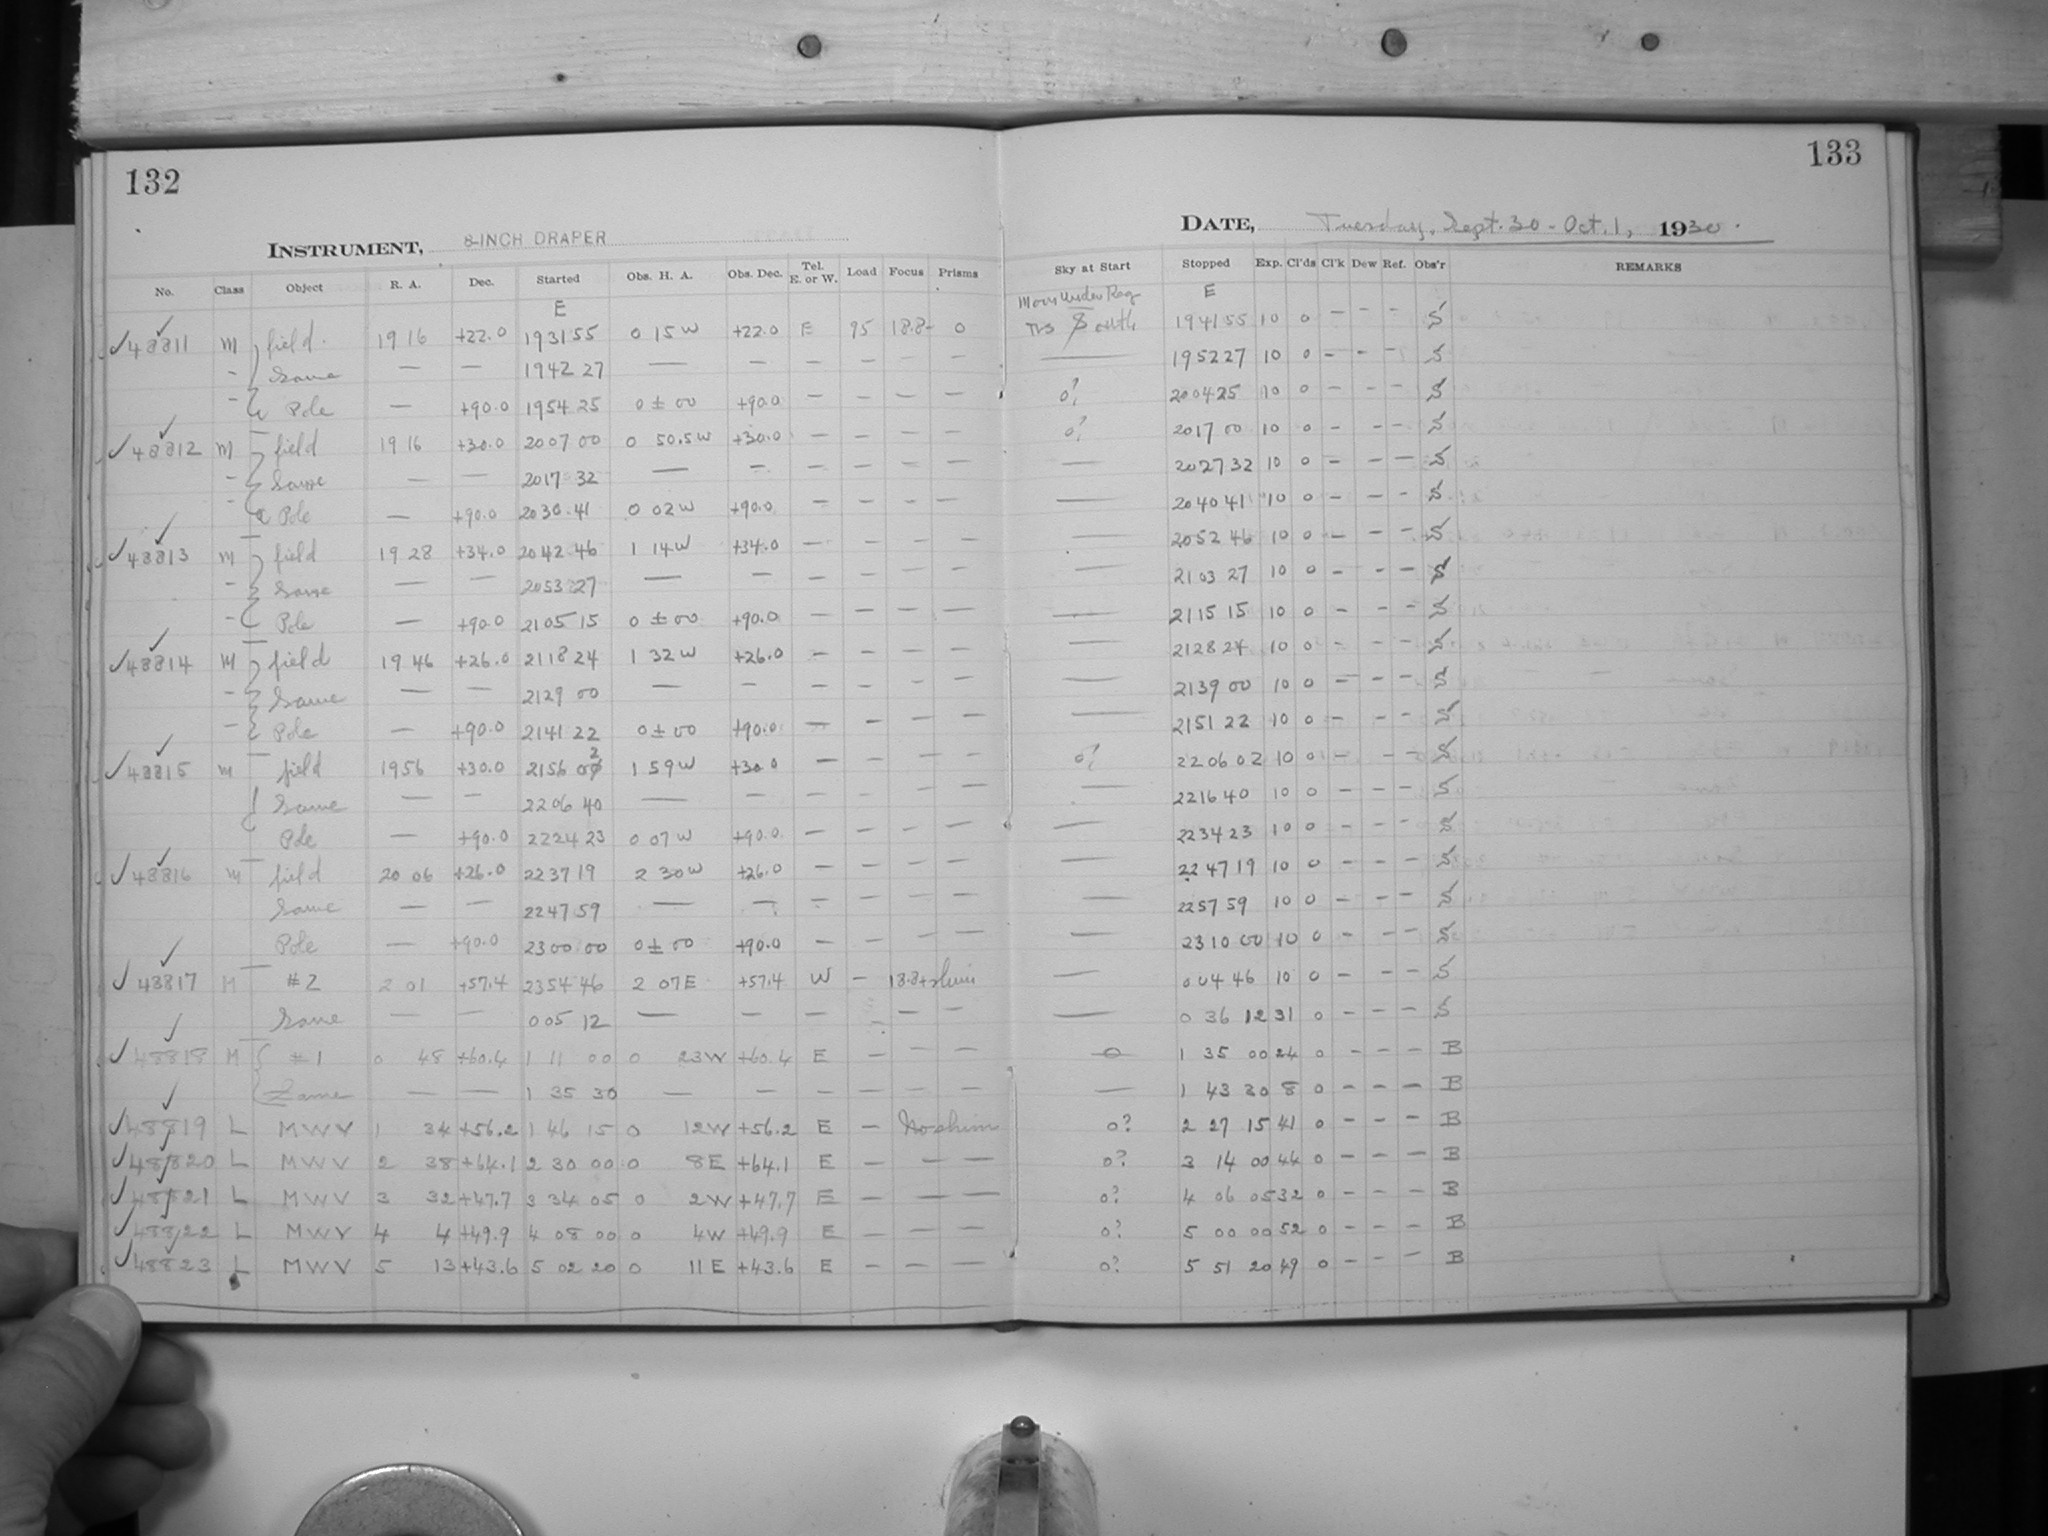 132
133
INSTRUMENT, 8-INCH DRAPER
DATE, Tuesday, Sept. 30 - Oct. 1, 1930.
No. Class Object R. A. Dec. Started Obs. H. A. Obs. Dec. Tel. E. or W. Load Focus Prisms Sky at Start Stopped Exp. Cl'ds Cl'k Dew Ref. Obs'r REMARKS
E E
✓48811 M field 19 16 +22.0 19 31 55 0 15 W +22.0 E 95 18.8- 0 South 19 41 55 10 0 - - - S
" Same — — 19 42 27 — — — — — — — 19 52 27 10 0 - - - S
" Pole — +90.0 19 54 25 0 ± 00 +90.0 — — — — 0? 20 04 25 10 0 - - - S
✓48812 M field 19 16 +30.0 20 07 00 0 50.5 W +30.0 — — — — 0? 20 17 00 10 0 - - - S
" Same — — 20 17 32 — — — — — — — 20 27 32 10 0 - - - S
" Pole — +90.0 20 30 41 0 02 W +90.0 — — — — — 20 40 41 10 0 - - - S
✓48813 M field 19 28 +34.0 20 42 46 1 14 W +34.0 — — — — — 20 52 46 10 0 - - - S
" Same — — 20 53 27 — — — — — — — 21 03 27 10 0 - - - S
" Pole — +90.0 21 05 15 0 ± 00 +90.0 — — — — — 21 15 15 10 0 - - - S
✓48814 M field 19 46 +26.0 21 18 24 1 32 W +26.0 — — — — — 21 28 24 10 0 - - - S
" Same — — 21 29 00 — — — — — — — 21 39 00 10 0 - - - S
" Pole — +90.0 21 41 22 0 ± 00 +90.0 — — — — — 21 51 22 10 0 - - - S
✓48815 M field 19 56 +30.0 21 56 02 1 59 W +30.0 — — — — 0? 22 06 02 10 0 - - - S
Same — — 22 06 40 — — — — — — — 22 16 40 10 0 - - - S
Pole — +90.0 22 24 23 0 07 W +90.0 — — — — — 22 34 23 10 0 - - - S
✓48816 M field 20 06 +26.0 22 37 19 2 30 W +26.0 — — — — — 22 47 19 10 0 - - - S
Same — — 22 47 59 — — — — — — — 22 57 59 10 0 - - - S
Pole — +90.0 23 00 00 0 ± 00 +90.0 — — — — — 23 10 00 10 0 - - - S
✓48817 M #2 2 01 +57.4 23 54 46 2 07 E +57.4 W — 18.8+shim — 0 04 46 10 0 - - - S
Same — — 0 05 12 — — — — — — — 0 36 12 31 0 - - - S
✓48818 M #1 0 48 +60.4 1 11 00 0 23 W +60.4 E — — — 0 1 35 00 24 0 - - - B
Same — — 1 35 30 — — — — — — — 1 43 30 8 0 - - - B
✓48819 L MWV 1 34 +56.2 1 46 15 0 12 W +56.2 E — No shim 0? 2 27 15 41 0 - - - B
✓48820 L MWV 2 38 +64.1 2 30 00 0 8 E +64.1 E — — — 0? 3 14 00 44 0 - - - B
✓48821 L MWV 3 32 +47.7 3 34 05 0 2 W +47.7 E — — — 0? 4 06 05 32 0 - - - B
✓48822 L MWV 4 4 +49.9 4 08 00 0 4 W +49.9 E — — — 0? 5 00 00 52 0 - - - B
✓48823 L MWV 5 13 +43.6 5 02 20 0 11 E +43.6 E — — — 0? 5 51 20 49 0 - - - B